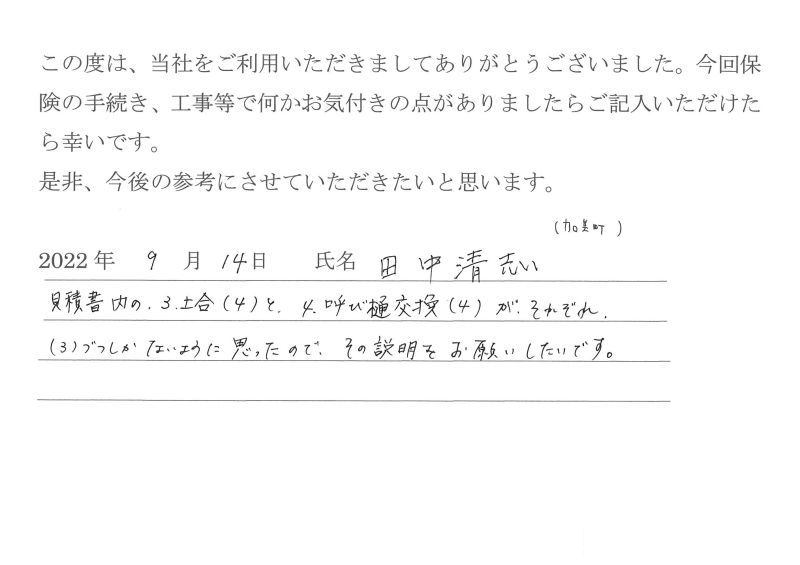 この度は、当社をご利用いただきましてありがとうございました。今回保
険の手続き、工事等で何かお気付きの点がありましたらご記入いただけた
ら幸いです。
是非、今後の参考にさせていただきたいと思います。
(加美町)
2022年 9月 14日 氏名 田中清志い
見積書内の、3.土合(4)と、4.呼び樋交換(4)が、それぞれ、
(3)づつしかないように思ったので、その説明をお願いしたいです。